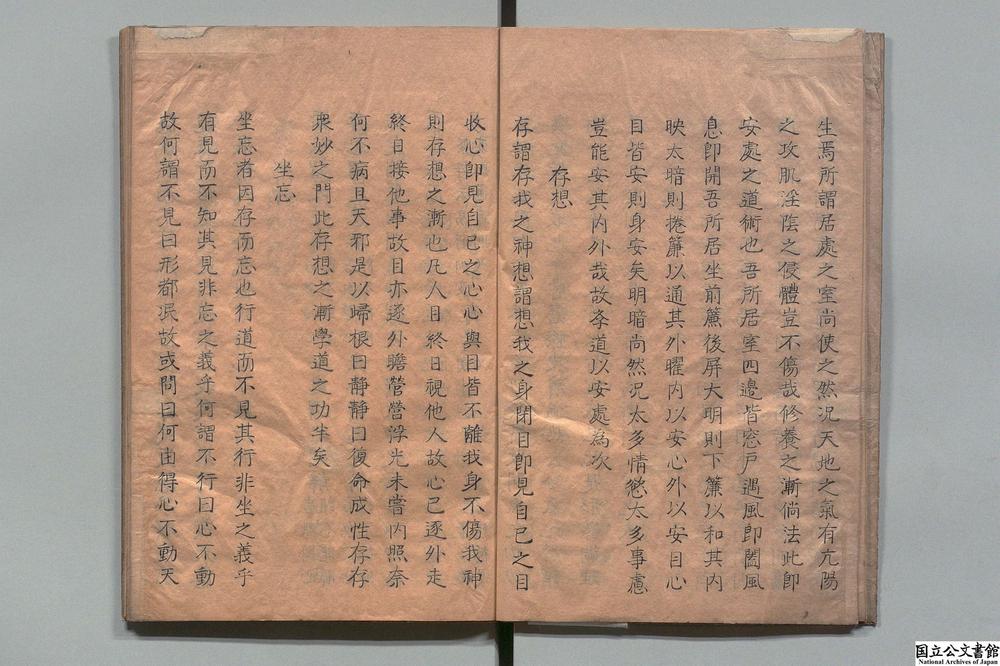 生焉所謂居處之室尚使之然況天地之氣有亢陽
之攻肌淫陰之侵體豈不傷哉修養之漸倘法此即
安處之道術也吾所居室四邊皆窓戶遇風即闔風
息即開吾所居坐前簾後屏大明則下簾以和其内
映太暗則捲簾以通其外曜内以安心外以安目心
目皆安則身安矣明暗尚然況太多情慾太多事慮
豈能安其内外哉故斈道以安處為次
存想
存謂存我之神想謂想我之身閉目即見自己之目
收心即見自己之心心與目皆不離我身不傷我神
則存想之漸也凡人目終日視他人故心已逐外走
終日接他事故目亦逐外瞻營營浮光未嘗内照奈
何不病且夭邪是以歸根曰静静曰復命成性存存
衆妙之門此存想之漸學道之功半矣
坐忘
坐忘者因存而忘也行道而不見其行非坐之義乎
有見而不知其見非忘之義乎何謂不行曰心不動
故何謂不見曰形都泯故或問曰何由得心不動天
国立公文書館
National Archives of Japan